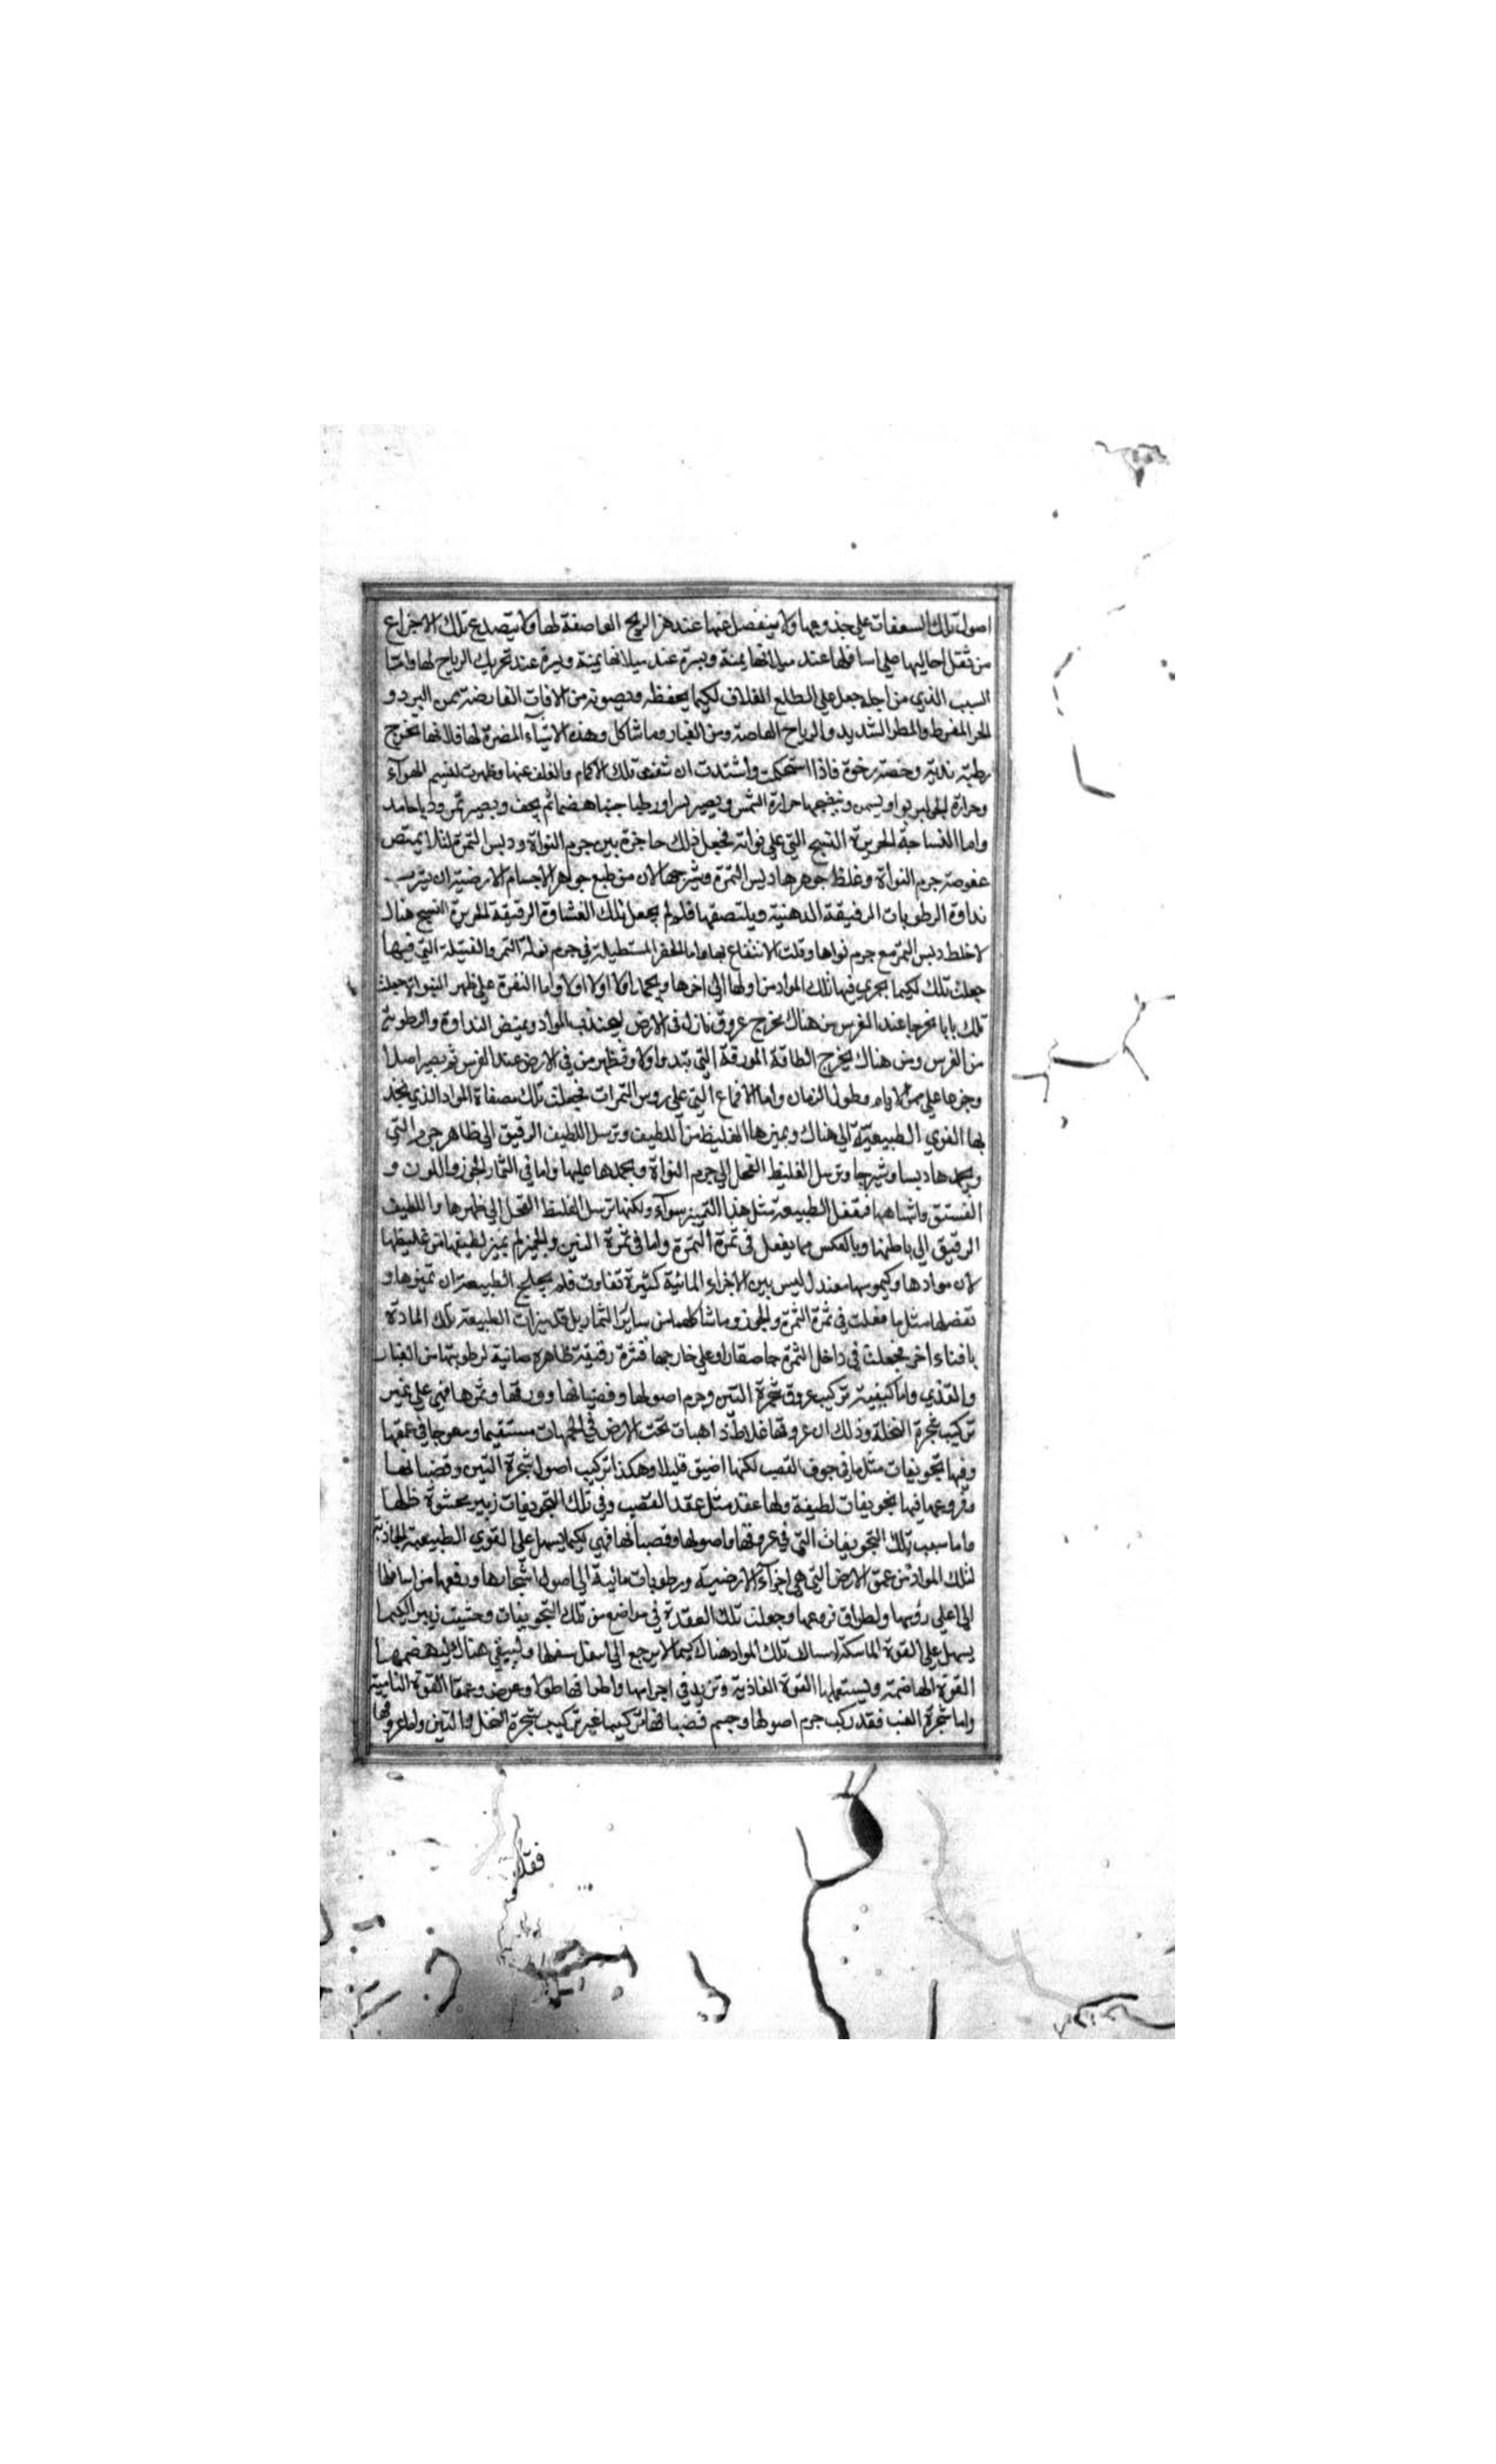 اصول تلك السعفات علي جذوعها ولا ينفصل عنها عند هز الريح العاصفة لها ولا يتصدع تلك الاجزاع
من ثقل اعاليها علي اسافلها عند ميلانها يمنة ويسرة عند ميلانها يمنة ويسرة عند تحريك الرياح لها واما
السبب الذي من اجله جعل علي الطلع الغلاف لكيما يحفظه ويصونه من الافات العارضة من البرد و
الحر المفرط والمطر الشديد والرياح العاصفة ومن الغبار وما شاكل وهذه الاشياء المضرة لها فلانها تخرج
رطبة ندية رخوة فاذا استحكمت واشتدت ان شقت تلك الاكمام والغلف عنها وظهرت لنسيم الهوآء
وحرارة الجو ليربوا ويسمن وينضجها حرارة الشمس ويصير بسرا ورطبا جنيا هضما ثم يجف ويصير تمر
واما النساجة الحريرة النسج التي علي نواته فجعل ذلك حاجزة بين جرم النواة ودبس التمرة لئلا يمتص
عفوصة جرم النواة وغلظ جوهرها دبس التمرة وشيرجها لان من طبع جواهر الاجسام الارضية ان
نداوة الرطوبات الرقيقة الدهنية ويلتصقها فلو لم يجعل تلك الغشاوة الرقيقة الحريرة النسج هناك
لاختلط دبس التمر مع جرم نواها وقلت الانتفاع بها واما الحفر المستطيلة في جرم نواة التمر والفتيلة التي فيها
جعلت تلك لكيما يجري فيها تلك المواد من اولها الى اخرها اولا اولا واما النقرة علي ظهر النواة جعلت
تلك بابا مخرجا عند الغرس من هناك يخرج عروق نازل في الارض ليجتذب المواد ويمتص النداوة والرطوبة
من الغرس ومن هناك يخرج الطاقة المورقة التي تبتدي اولا وتظهر من في الارض عند الغرس ثم يصير اصلا
وجزعا علي ممر الايام وطول الزمان واما الاقماع التي علي روس التمرات فجعلت تلك مصفاة المواد الذي
بها القوي الطبيعية الي هناك ويميزها الغليظ من اللطيف وترسل اللطيف الرقيق الي ظاهر جرم التي
ويجمدها دبسا وشيرجا وترسل الغليظ القحل الي جرم النواة ويجمدها عليها واما في الثمار الجوز واللوز و
الفستق واشباهها فتفعل الطبيعة مثل هذا التمييز سوآء ولكنها ترسل الغليظ القحل الي ظهرها واللطيف
الرقيق الي باطنها وبالعكس مما يفعل في ثمرة التمرة واما في ثمرة التين والجميز لم يميز لطيفها من غليظها
لان موادها وكيموسها معتدل ليس بين الاجزاء المائية كثيرة تفاوت فلم يحتاج الطبيعة ان تميزها و
تفصلها مثل ما فعلت في ثمرة التمرة والجوز وما شاكلهما من سائر الثمار بل الطبيعة تلك المادة
اخر فجعلت في داخل الثمرة وعلي خارجها قشرة رقيقة ظاهرة صائنة لرطوبتها من الغبار
والقذي واما كيفية تركيب عروق شجرة التين وجرم اصولها وقضبانها وورقها وثمرها فهي علي غير
تركيب شجرة النخلة وذلك ان عروقها غلاظ ذاهبات تحت الارض في الجهات مستقيما ومعوجا في عمقها
وفيها تجويفات مثل ما في جوف القصب لكنها اضيق قليلا وهكذا تركيب اصول شجرة التين وقضبانها
وفروعها فيها تجويفات لطيفة ولها عقد مثل عقد القصب وفي تلك التجويفات زبير محشوة
واما سبب تلك التجويفات التي في عروقها واصولها وقضبانها فهي لكيما يسهل علي القوي الطبيعية الجاذبة
لتلك المواد من عمق الارض التي هي اجزآء الارضية ورطوبات مائية الي اصول اشجارها ورفعها من اسافلها
الي اعلي رؤسها فروعها وجعلت تلك العقدة في مواضع من تلك التجويفات وحشيت زبيرا لكيما
يسهل علي القوة الماسكة امساك تلك المواد هناك كيما لا يرجع الي اسفل سفلها وليبقي هناك ليهضمها
القوة الهاضمة وليستعملها القوة الغاذية وتزيد في اجرامها واطرافها طولا وعرض وعمقا القوة النامية
واما شجرة العنب فقد ركب جرم اصولها وجسم قضبانها تركيبا غير تركيب شجرة النخل والتين واما عروقها
فقد